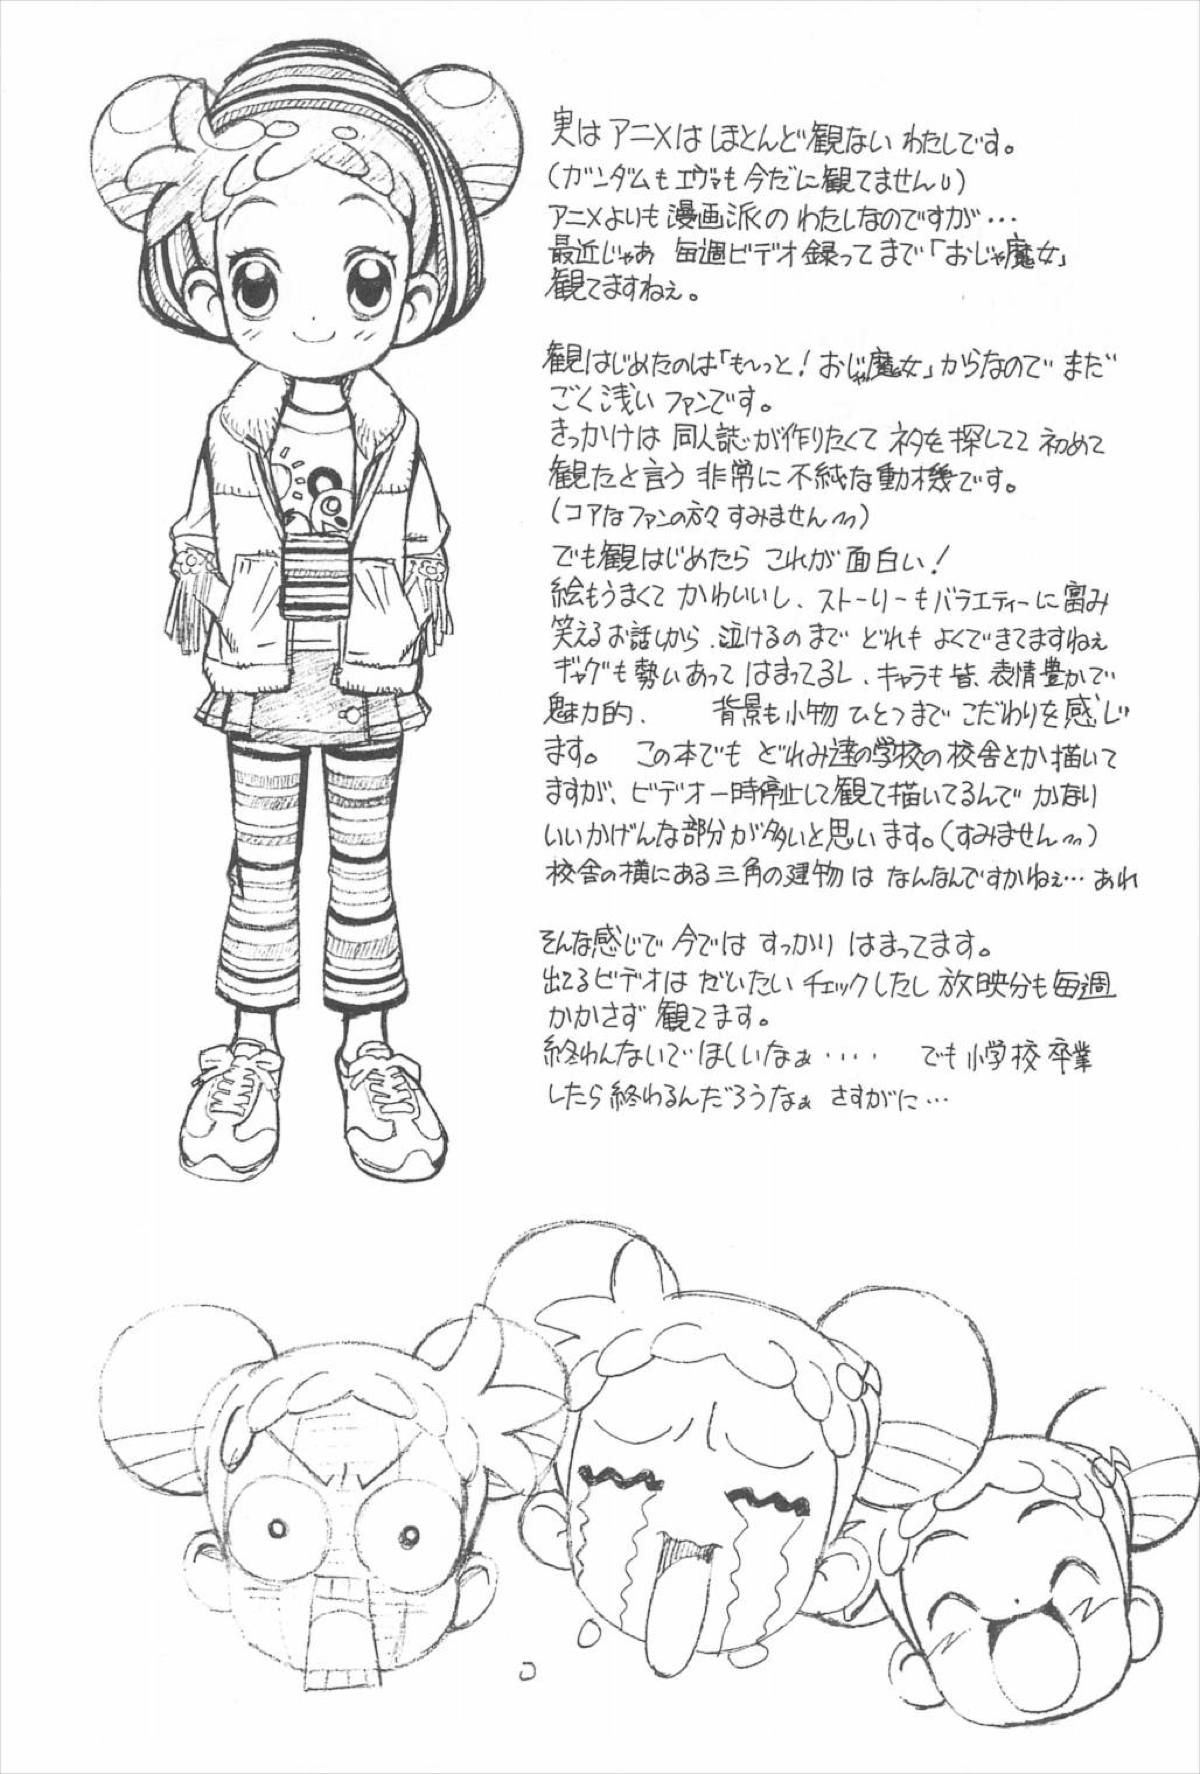 実は アニメは ほとんど観ない わたしです。
(ガンダムも エヴァも 今だに観てません)
アニメよりも 漫画派の わたしなのですが…
最近じゃあ 毎週ビデオ録ってまで「おじゃ魔女」
観てますねぇ。
観はじめたのは「も〜っと!おじゃ魔女」からなので まだ
ごく浅い ファンです。
きっかけは 同人誌が作りたくて ネタを探してて 初めて
観たと言う 非常に 不純な動機です。
(コアなファンの方々 すみません)
でも観はじめたら これが 面白い!
絵もうまくて かわいいし、ストーリーもバラエティーに富み
笑えるお話しから、泣けるのまで どれも よくできてますねぇ
ギャグも勢いあって はまってるし、キャラも皆、表情豊かで
魅力的、 背景も小物 ひとつまで こだわりを感じ
ます。 この本でも どれみ達の学校の校舎とか描いて
ますが、ビデオ一時停止して観て描いてるんで かなり
いいかげんな部分が多いと思います。(すみません)
校舎の横にある三角の建物は なんなんですかねぇ… あれ
そんな感じで 今では すっかり はまってます。
出てるビデオは だいたい チェックしたし 放映分も毎週
かかさず 観てます。
終わんないでほしいなぁ‥‥ でも小学校 卒業
したら終わるんだろうなぁ さすがに…